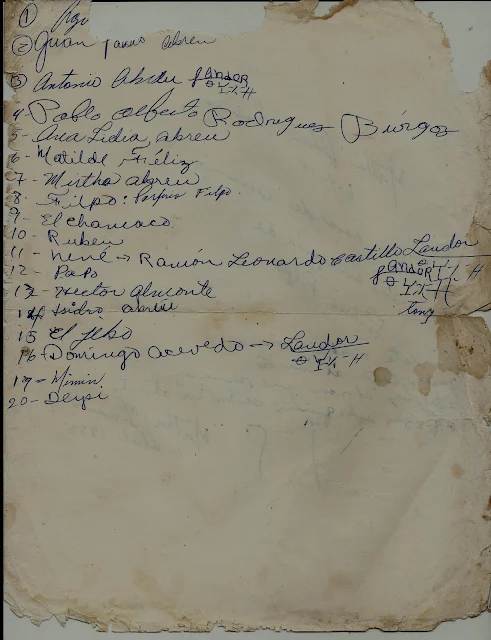 ①
② Juan Abreu
③ Antonio Abreu
4- Pablo Alberto Rodriguez Búrgos
5- Ana Lidia Abreu
6- Matilde Féliz
7- Mirtha Abreu
8- Filpo: Porfirio Filpo
9- El chamaco
10- Ruben
11- Nené → Ramón Leonardo Castillo Landor
12- Papo
13- Hector Almonte
14 Isidro Abreu
tony
15 El
16- Domingo Acevedo → Landor
17- Mimin
20- Deysi